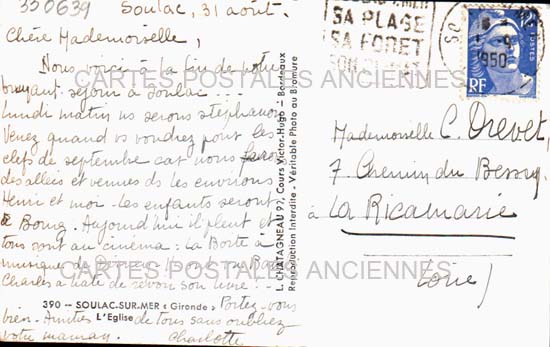 350639
Soulac, 31 août.
Chère Mademoiselle,
Nous voici à la fin de notre
bruyant séjour à Soulac ...
Lundi matin ns serons stéphanois
Venez quand vs voudrez pour les
clefs de septembre car nous ferons
des allées et venues ds les environs
Henri et moi - les enfants seront
à Bourg. Aujourd'hui il pleut et
tous sont au cinéma : La Boîte à
musique de
Charles a hâte de revoir son livre !
390 -- SOULAC-SUR-MER « Gironde »
L'Eglise
Portez-vous
bien. Amitiés de tous sans oublier
votre maman. Charlotte
L. CHATAGNEAU 97, Cours Victor-Hugo - Bordeaux
Reproduction Interdite - Véritable Photo au Bromure
SA PLAGE
SA FORET
1950
POSTES
RF
Mademoiselle C. Drevet,
7 Chemin du Bessy
à La Ricamarie
Loire)
CARTES POSTALES ANCIENNES
CARTES POSTALES ANCIENNES